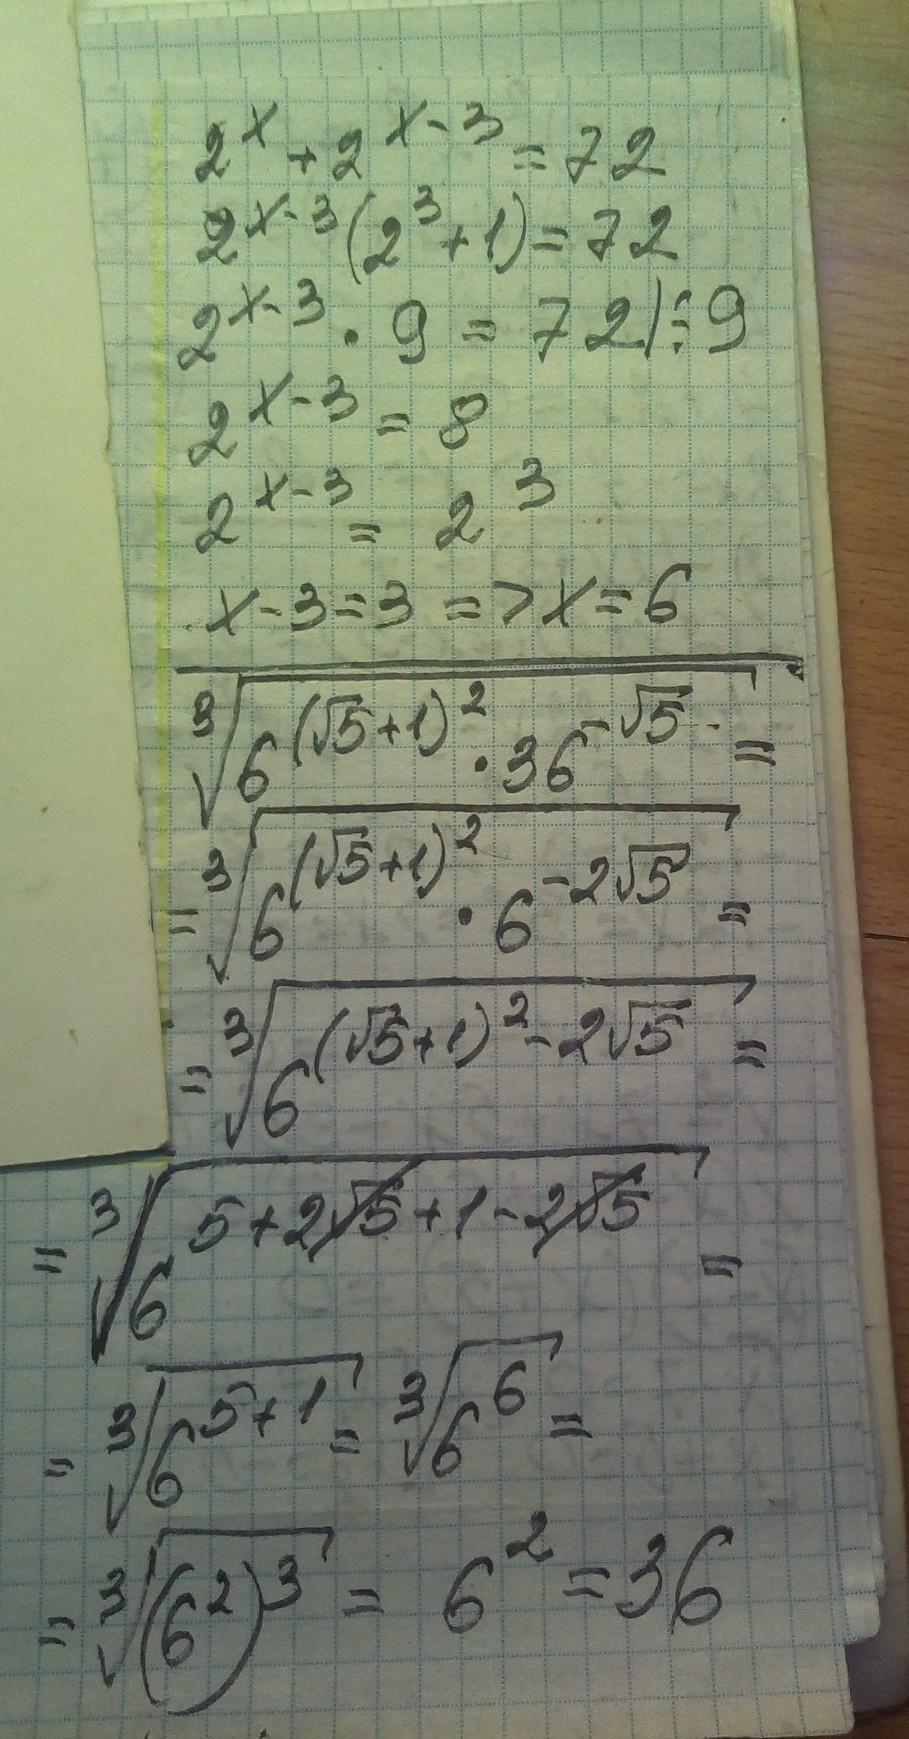 2^x + 2^(x-3) = 72
2^(x-3) (2^3 + 1) = 72
2^(x-3) · 9 = 72 | : 9
2^(x-3) = 8
2^(x-3) = 2^3
x - 3 = 3 => x = 6
∛(6^((√5+1)^2) · 36^(-√5)) =
= ∛(6^((√5+1)^2) · 6^(-2√5)) =
= ∛(6^((√5+1)^2 - 2√5)) =
= ∛(6^(5+2√5+1-2√5)) =
= ∛(6^(5+1)) = ∛(6^6) =
= ∛((6^2)^3) = 6^2 = 36